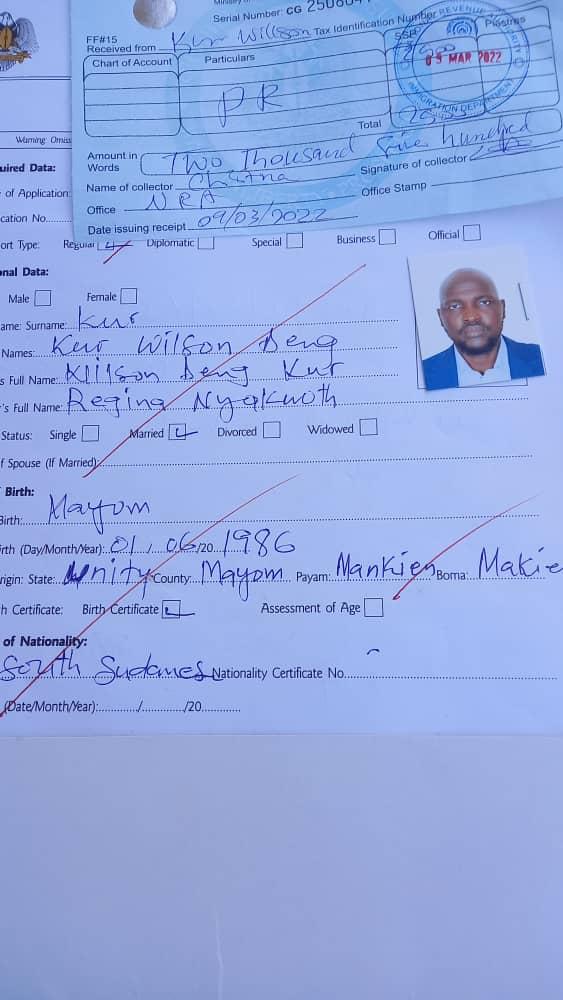 Serial Number: CG
FF#15
Received from Kur Willson Tax Identification Number
Chart of Account Particulars SSP Piastres
REVENUE
09 MAR 2022
IMMIGRATION
PR
Total
Amount in Words Two Thousand five hundred
Name of collector Signature of collector
Office NRA Office Stamp
Date issuing receipt 09/03/2022
Warning Omiss
uired Data:
of Application:
cation No.
ort Type: Regular Diplomatic Special Business Official
nal Data:
Male Female
ame: Surname: Kur
Names: Kur Wilson Deng
s Full Name: Willson Deng Kur
's Full Name: Regina Nyakuoth
Status: Single Married Divorced Widowed
f Spouse (If Married)
Birth:
Birth: Mayom
irth (Day/Month/Year): 01/06/20 1986
rigin: State: Unity County: Mayom Payam: Mankien Boma: Makie
h Certificate: Birth Certificate Assessment of Age
of Nationality:
South Sudanes Nationality Certificate No.
(Date/Month/Year): / /20